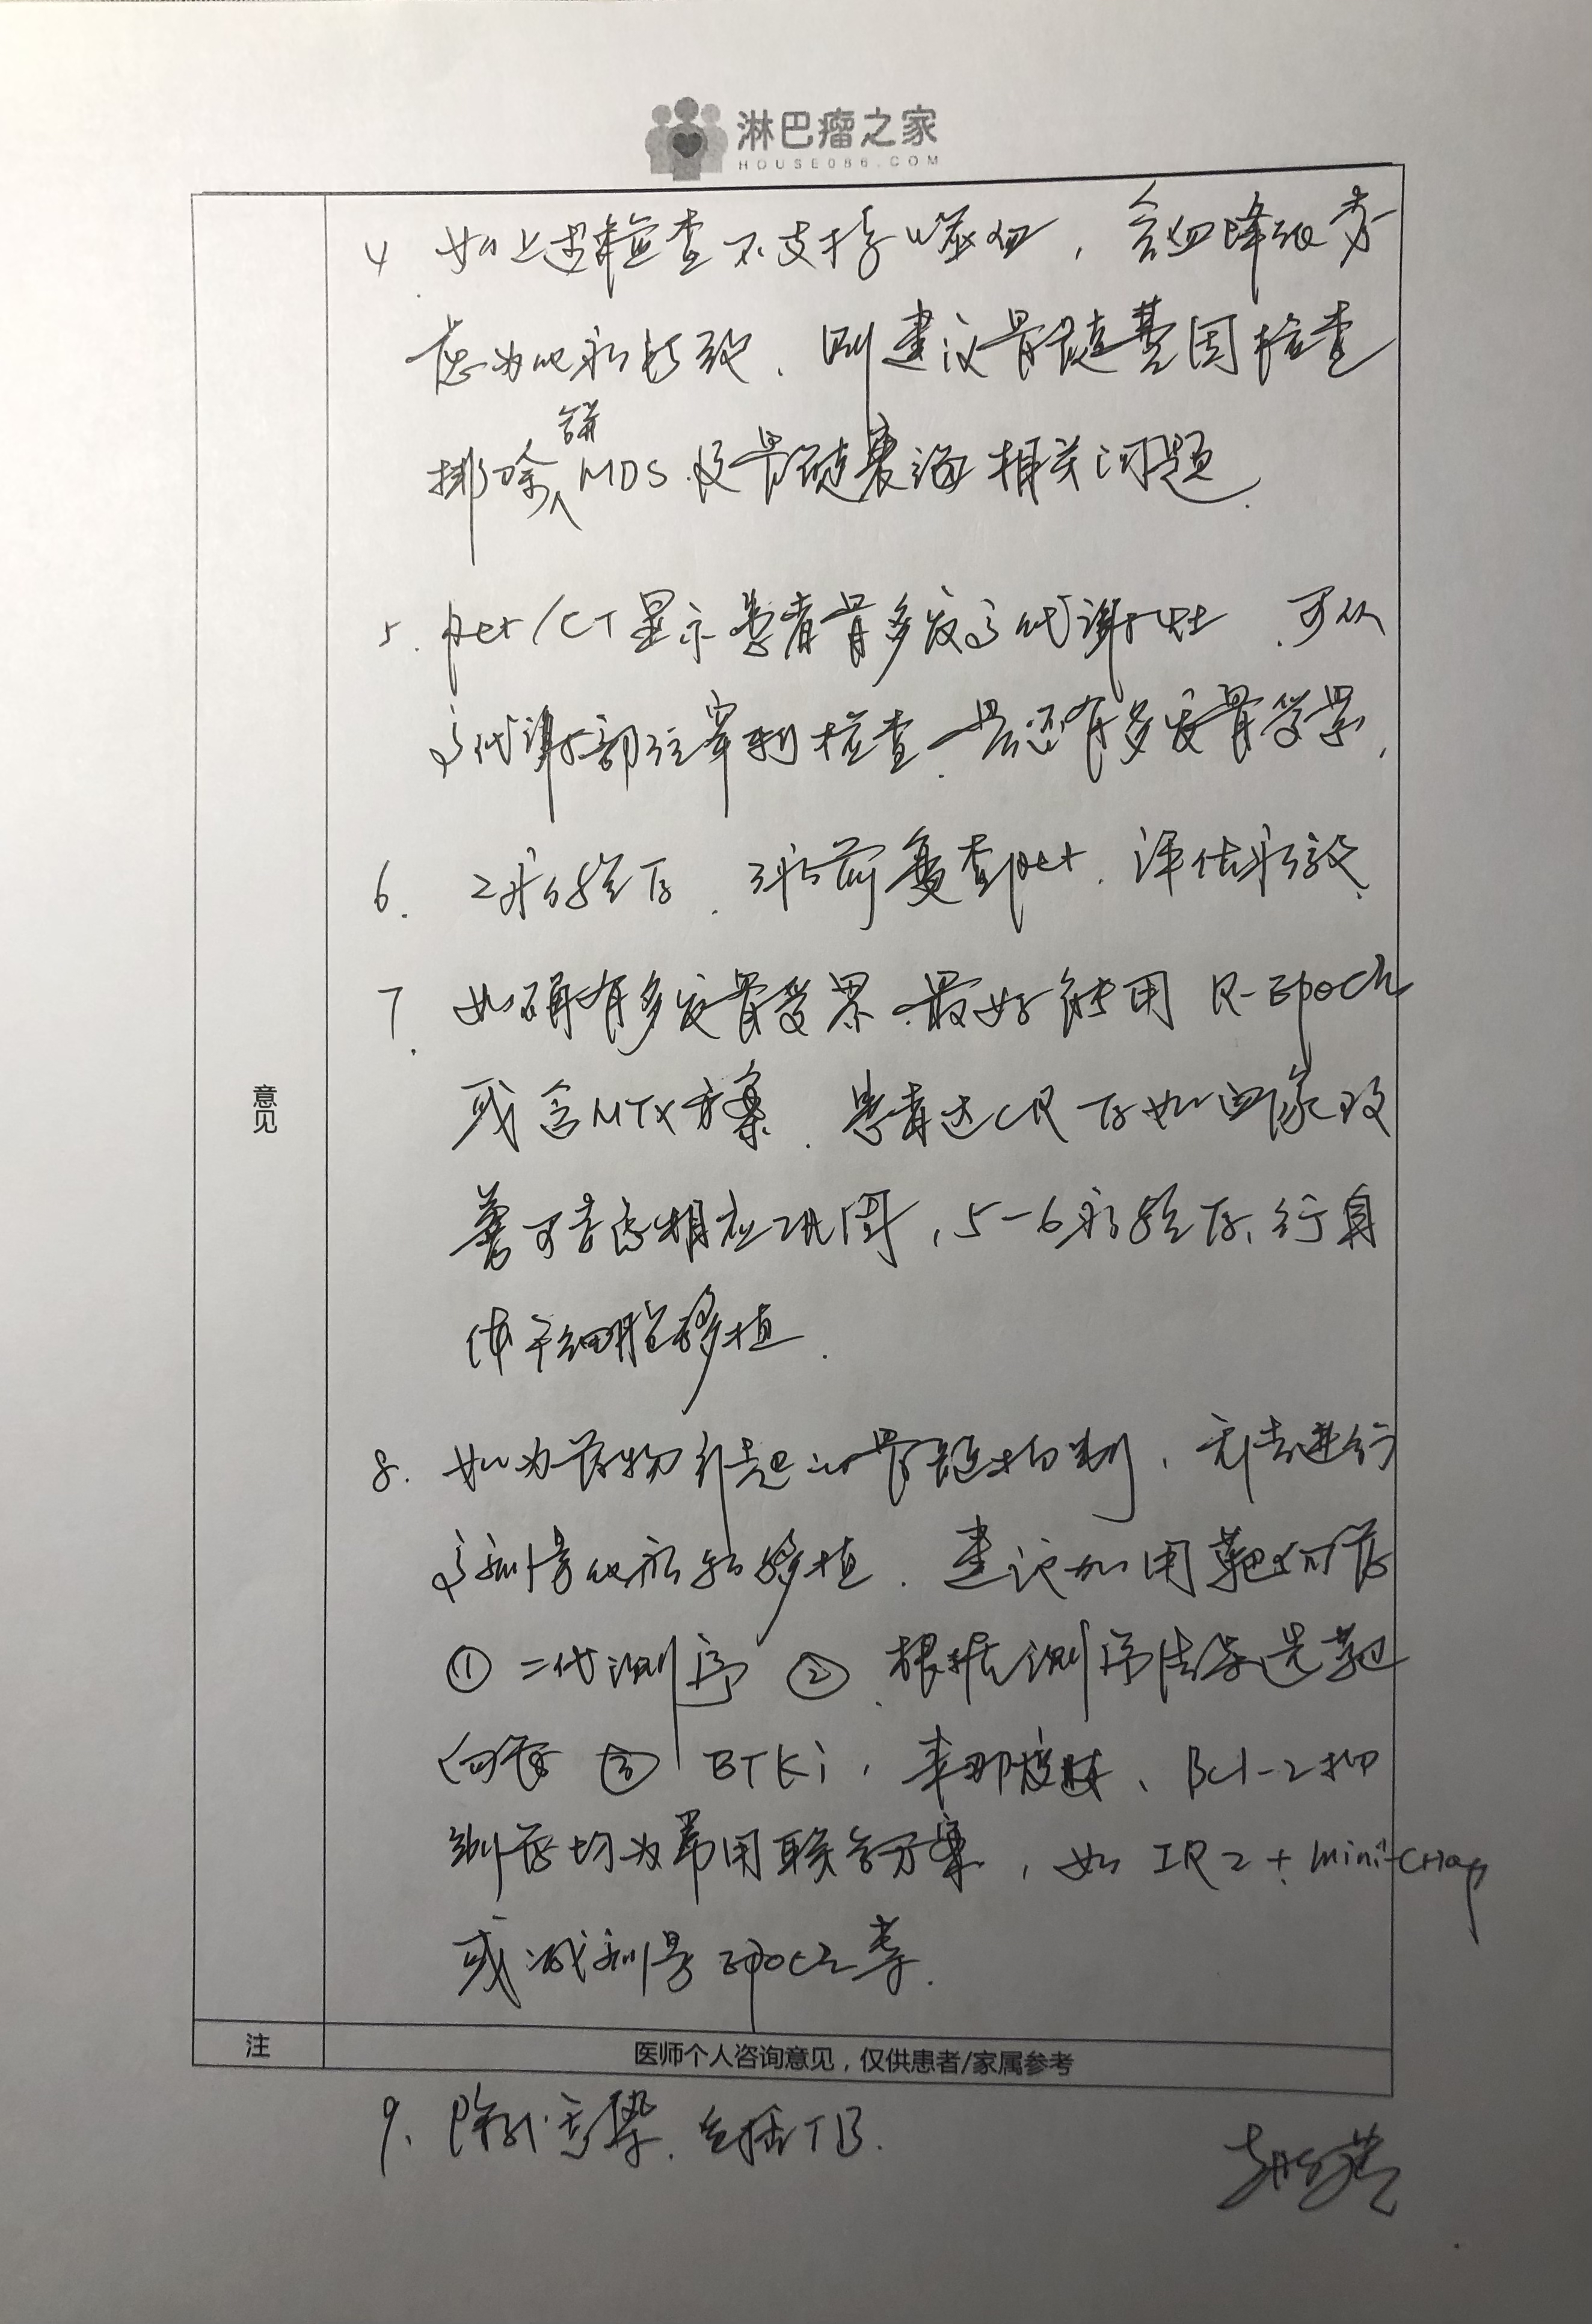 淋巴瘤之家
HOUSE086.COM
意见
4. 如上述检查不支持噬血,全血降低考
虑为化疗导致,则建议骨髓基因检查
排除合并MDS及骨髓衰竭相关问题.
5. pet/CT显示患者骨多发高代谢灶,可从
高代谢部位穿刺检查是否还有多发骨受累,
6. 2疗结束后,3疗前复查pet,评估疗效.
7. 如确有多发骨受累,最好能用R-Epoch
或含MTX方案,患者达CR后如血象改
善可考虑相应巩固,5-6疗结束后,行自
体干细胞移植.
8. 如为药物引起的骨髓抑制,无法进行
高剂量化疗和移植,建议加用靶向药
① 二代测序 ② 根据测序结果选靶
向药 ③ BTKi,来那度胺、Bcl-2抑
制药均为常用联合方案,如IR2+mini-CHOP
或减剂量Epoch等.
注
医师个人咨询意见,仅供患者/家属参考
9. 除外感染,包括TB.